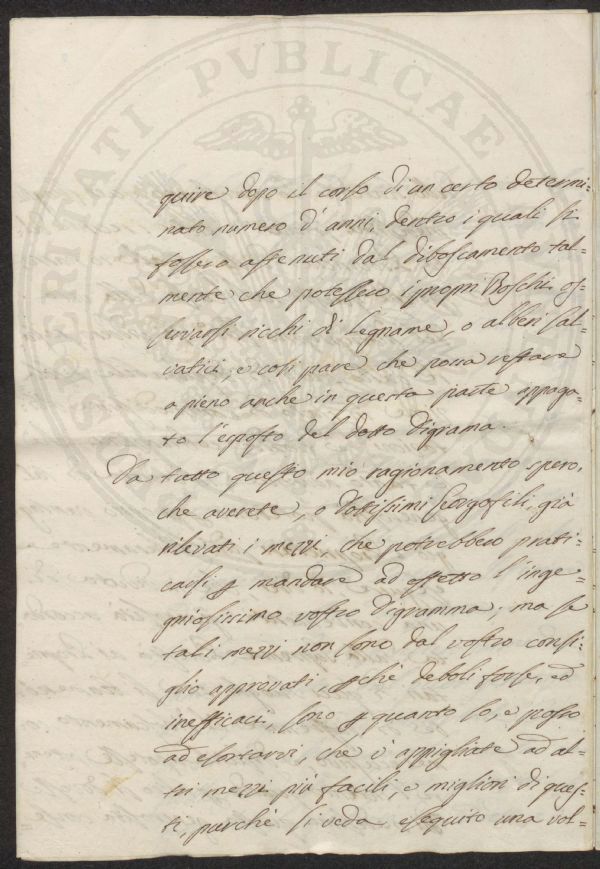 PVBLICAE
quire dopo il corso di un certo determi-
nato numero d'anni, dentro i quali si
fossero astenuti dal diboscamento tal-
mente che potessero i propri Boschi os-
servarsi ricchi di Legname, o alberi sal-
vatici, e così pare che possa restare
a pieno anche in questa parte appaga-
to l'esposto del dotto Digrama.
Da tutto questo mio ragionamento spero,
che averete, o Dottissimi Georgofili, già
rilevati i mezzi, che potrebbero prati-
carsi p mandare ad effetto l'inge-
gniosissimo vostro Digramma; ma se
tali mezzi non sono dal vostro consi-
glio approvati, pchè deboli forse, ed
inefficaci, sono p quanto so, e posso
ad esortarvi, che v'appigliate ad al-
tri mezzi più facili, e migliori di ques-
ti, purchè si veda eseguito una vol-